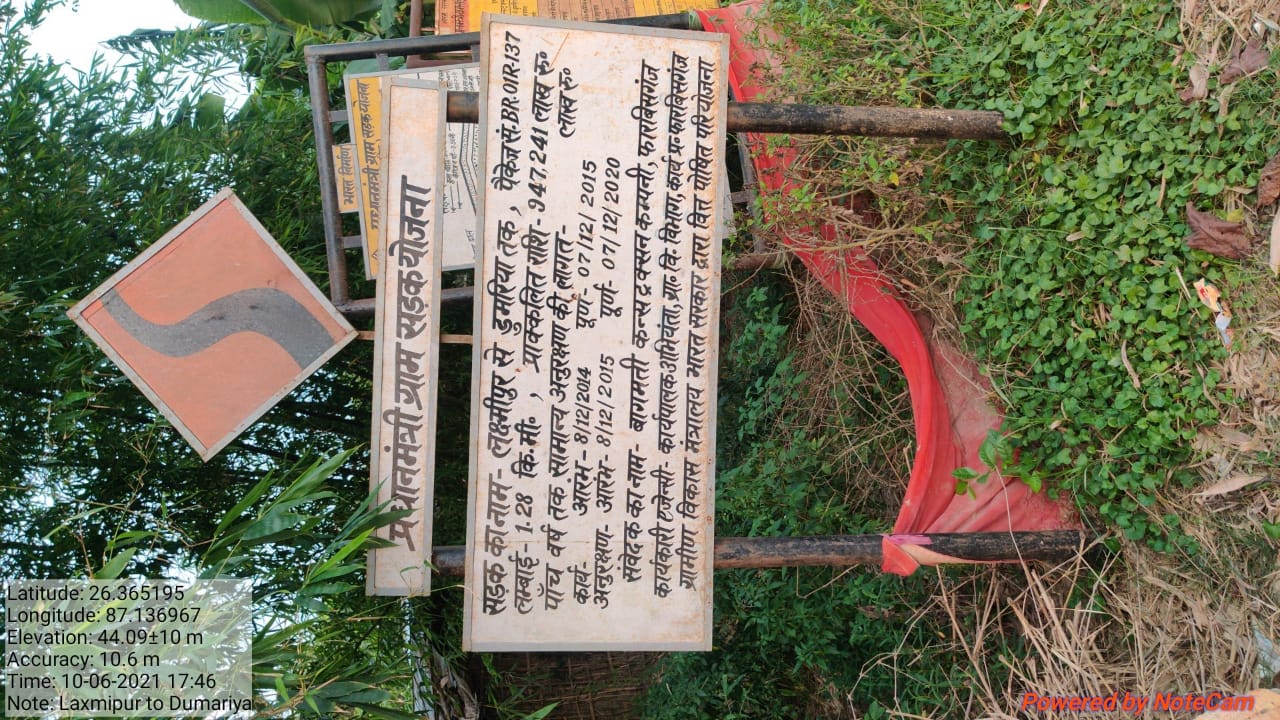 प्रधानमंत्री ग्राम सड़क योजना
सड़क का नाम- लक्ष्मीपुर से डुमरिया तक , पैकेज सं. BR01R-137
लम्बाई- 1.28 कि.मी. , प्राक्कलित राशि- 947.241 लाख रु०
पाँच वर्ष तक सामान्य अनुरक्षण की लागत- लाख रु०
कार्य- आरंभ- 8/12/2014 पूर्ण- 07/12/2015
अनुरक्षण- आरंभ- 8/12/2015 पूर्ण- 07/12/2020
संवेदक का नाम- बागमती कन्सट्रक्सन कम्पनी, फारबिसगंज
कार्यकारी एजेन्सी- कार्यपालक अभियंता, ग्रा. कि. विभाग, कार्य प्र. फारबिसगंज
ग्रामीण विकास मंत्रालय भारत सरकार द्वारा वित्त पोषित परियोजना
भारत निर्माण
प्रधानमंत्री ग्राम सड़क योजना
Latitude: 26.365195
Longitude: 87.136967
Elevation: 44.09±10 m
Accuracy: 10.6 m
Time: 10-06-2021 17:46
Note: Laxmipur to Dumariya
Powered by NoteCam